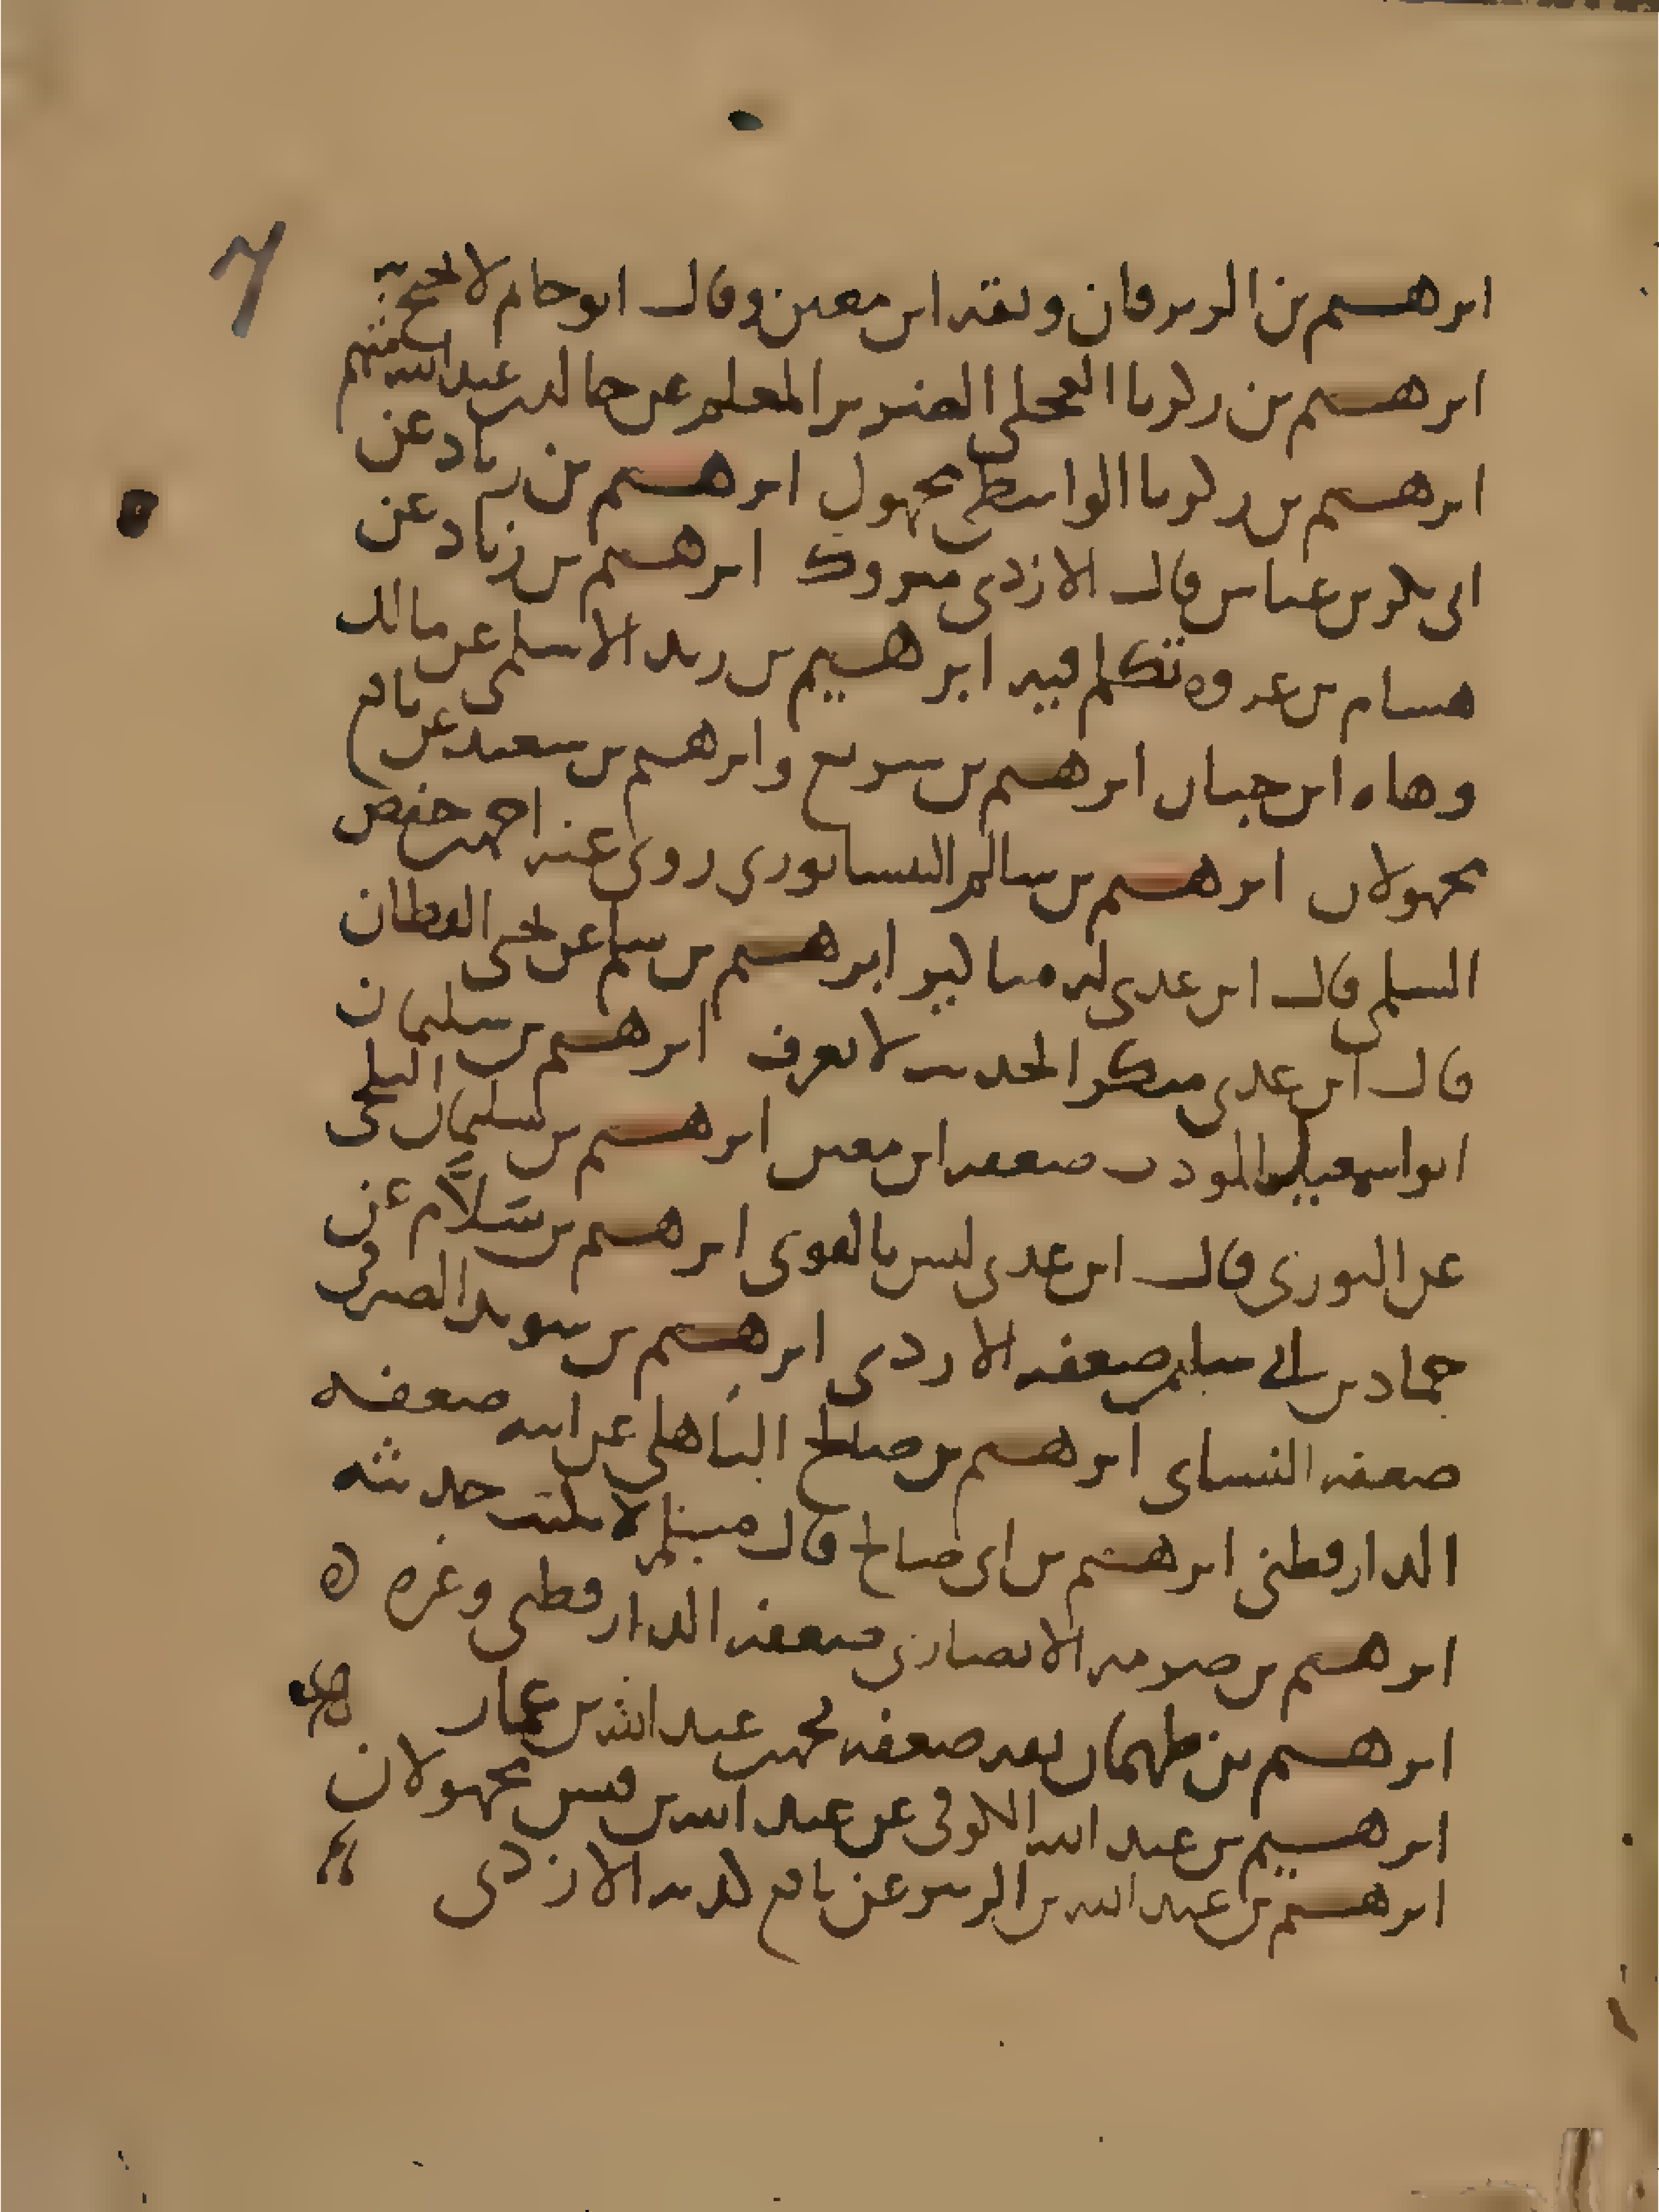 ٧
ابرهيم بن الزبرقان وثقه ابن معين وقال ابو حاتم لا يحتج به
ابرهيم بن زكريا العجلي الضرير المعلم عن خالد بن عبد الله متهم
ابرهيم بن زكريا الواسطي مجهول ابرهيم بن زياد عن
ابي بكر بن عياش قال الازدي متروك ابرهيم بن زياد عن
هشام بن عروه تكلم فيه ابرهيم بن زيد الاسلمي عن مالك
وهاه ابن حبان ابرهيم بن سريع وابرهيم بن سعيد عن نافع
مجهولان ابرهيم بن سالم النيسابوري روى عنه احمد بن حفص
السلمي قال ابن عدي له مناكير ابرهيم بن سلم عن يحيى القطان
قال ابن عدي منكر الحديث لا يعرف ابرهيم بن سليمان
ابو اسمعيل المودب ضعفه ابن معين ابرهيم بن سليمان البلخي
عن الثوري قال ابن عدي ليس بالقوي ابرهيم بن سلام عن
حماد بن ابي سليمن ضعفه الازدي ابرهيم بن سويد الصيرفي
ضعفه النساي ابرهيم بن صالح الباهلي عن ابيه ضعفه
الدارقطني ابرهيم بن ابي صالح قال مسلم لا يكتب حديثه
ابرهيم بن صرمه الانصاري ضعفه الدارقطني وغيره ه
ابرهيم بن طهمان ثقه ضعفه محمد بن عبد الله بن عمار
ابرهيم بن عبد الله الكوفي عن عبد الله بن قيس مجهولان
ابرهيم بن عبد الله بن الزبير عن نافع كذبه الازدي